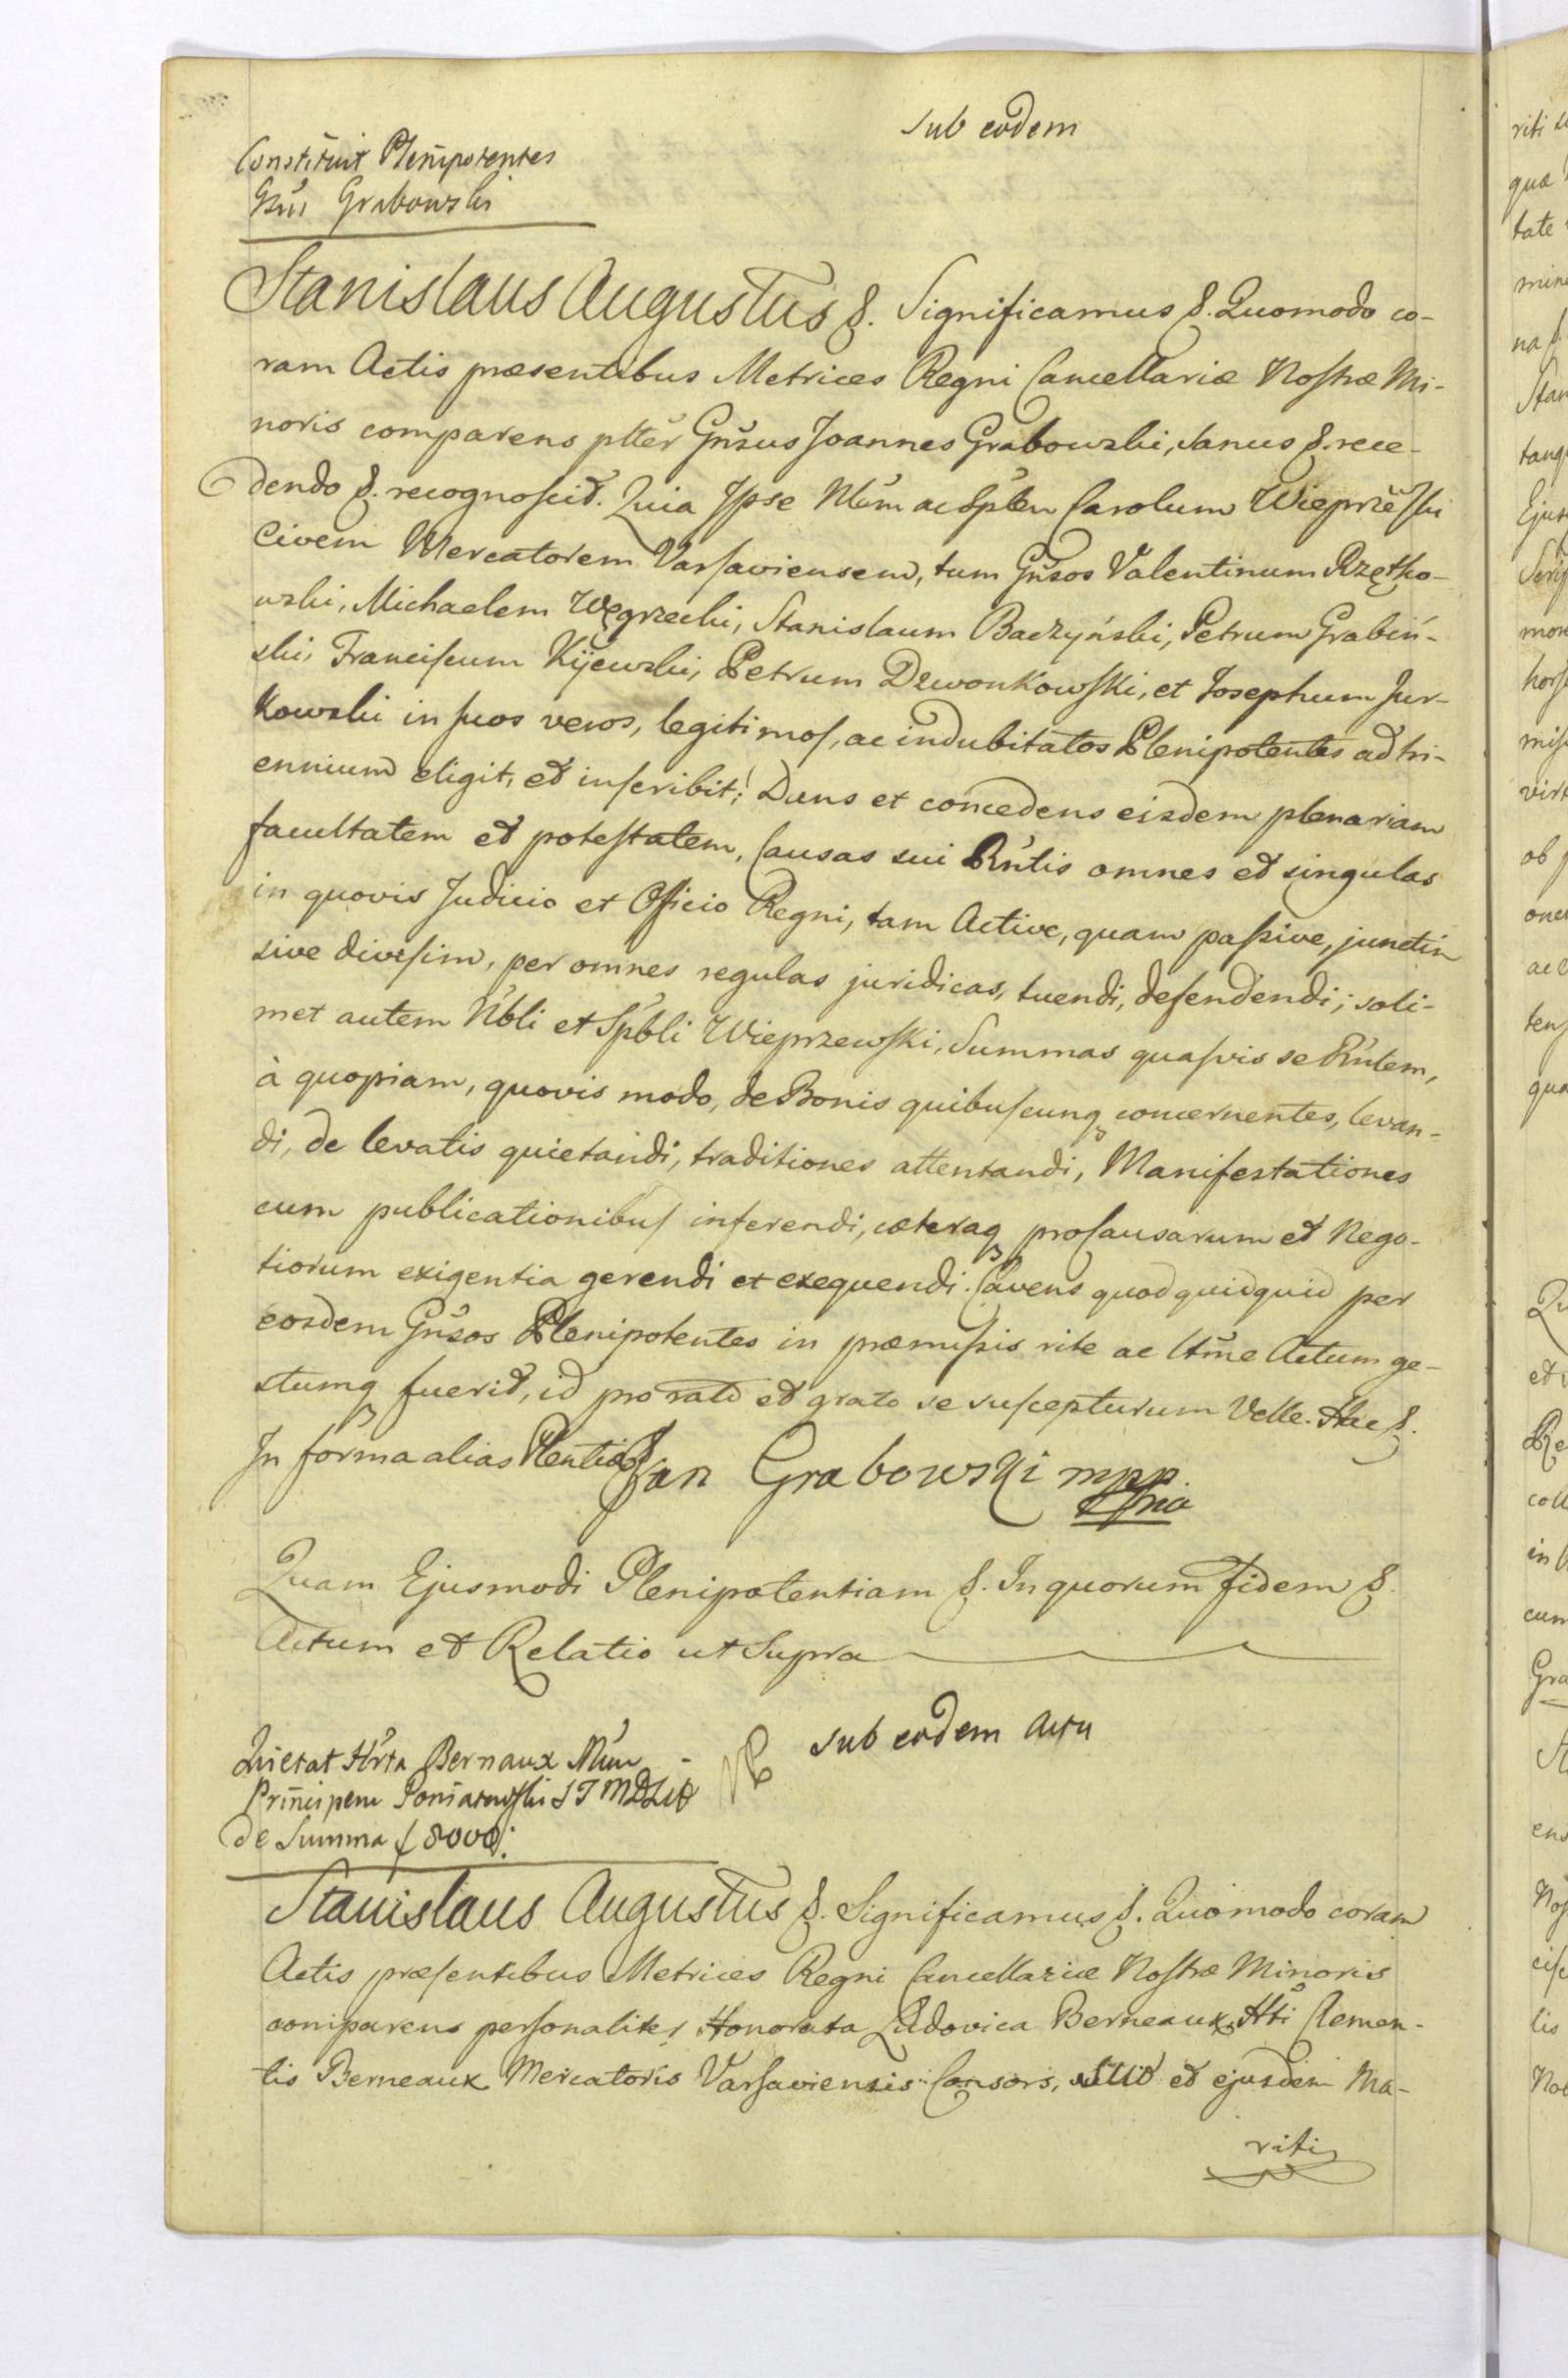 sub eodem
Constituit Plenipotentes
Gnũs Grabowski
Stanislaus Augustus &. Significamus &. Quomodo co-
ram Actis præsentibus Metrices Regni Cancellariæ Nostræ Mi-
noris comparens plter Gñsus Joannes Grabowski, sanus &. rece-
dendo &. recognoscit. Quia Ipse Nblm ac Spblem Carolum Wieprzewski
Civem Mercatorem Varsaviensem, tum Gñsos Valentinum Rzętko-
wski, Michaelem Węgrzecki, Stanislaum Baczyński, Petrum Grabiń-
ski, Franciscum Kijewski, Petrum Dzwonkowski, et Josephum Jur-
kowski in suos veros, legitimos, ac indubitatos Plenipotentes ad tri-
ennium eligit, et inscribit; Dans et concedens eisdem plenariam
facultatem et potestatem, Causas sui Rñtis omnes et singulas
in quovis Judicio et Officio Regni, tam Active, quam passive, junctim
sive divisim, per omnes regulas juridicas, tuendi, defendendi; soli-
met autem Nbli et Spbli Wieprzewski, Summas quasvis se Rñtem,
à quopiam, quovis modo, de Bonis quibuscunq concernentes, levan-
di, de levatis quietandi, traditiones attentandi, Manifestationes
cum publicationibus inferendi, cæteraq pro Causarum et Nego-
tiorum exigentia gerendi et exequendi. Cavens quod quidquid per
eosdem Gñsos Plenipotentes in præmissis rite ac ltme Actum ge-
stumq fuerit, id pro rato et grato se suscepturum Velle. Hac &.
In forma alias Plentiæ &
Jan Grabowski mpp.
Quam Ejusmodi Plenipotentiam &. In quorum fidem &.
Actum et Relatio ut Supra
sub eodem Actu
Quietat Hrta Bernaux
Principem Poniatowski
de Summa f 8000.
Stanislaus Augustus &. Significamus &. Quomodo coram
Actis præsentibus Metrices Regni Cancellariæ Nostræ Minoris
comparens personaliter Honorata Ludovica Berneaux, Hti Clemen-
tis Berneaux Mercatoris Varsaviensis Consors, suo et ejusdem Ma-
riti